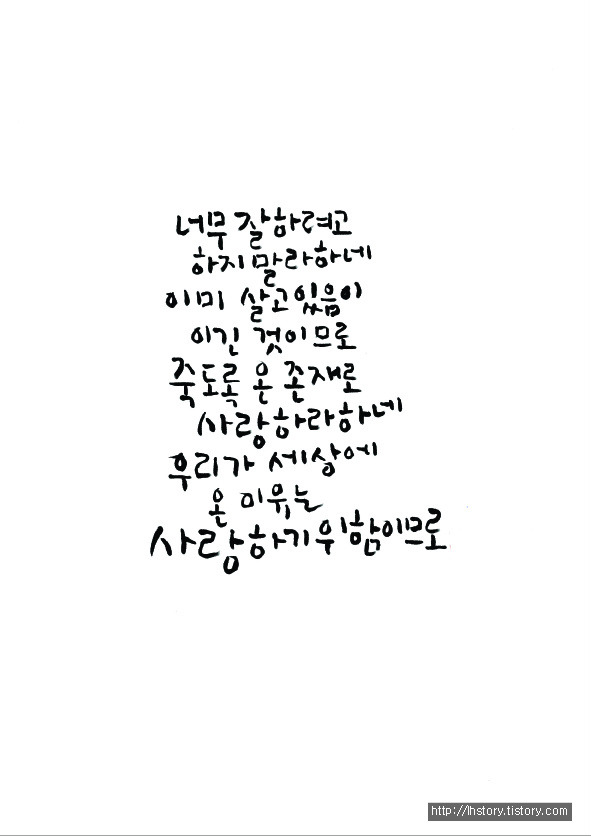 너무 잘하려고
하지말라하네
이미 살고있음이
이긴 것이므로
죽도록 온 존재로
사랑하라하네
우리가 세상에
온 이유는
사랑하기위함이므로
http://lhstory.tistory.com